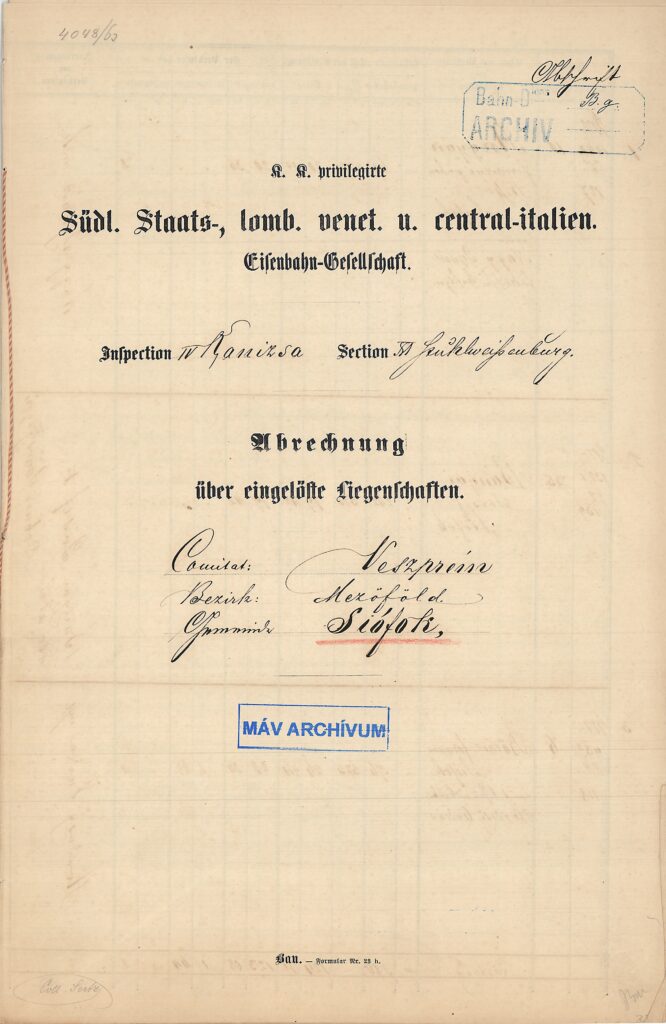 4048/63
Abschrift
B. g.
Bahn-D
ARCHIV
K. K. privilegirte
Südl. Staats-, lomb. venet. u. central-italien.
Eisenbahn-Gesellschaft.
Inspection IV Kanizsa Section Stuhlweißenburg.
Abrechnung
über eingelöste Liegenschaften.
Comitat: Veszprém
Bezirk: Mezőföld.
Gemeinde Siófok,
MÁV ARCHÍVUM
Bau. — Formular Nr. 23 b.